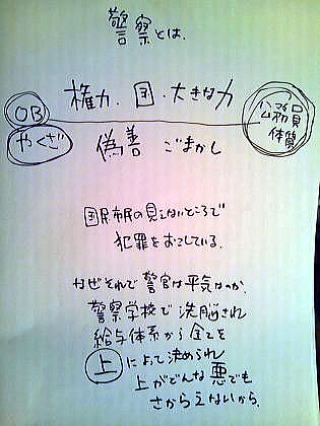 警察とは、
権力、国、大きな力
OB
公務員
体質
やくざ
偽善 ごまかし
国民市民の見えないところで
犯罪をおこしている。
なぜそれで警官は平気なのか、
警察学校で洗脳され
給与体系から全てを
上によって決められ
上がどんな悪でも
さからえないから。